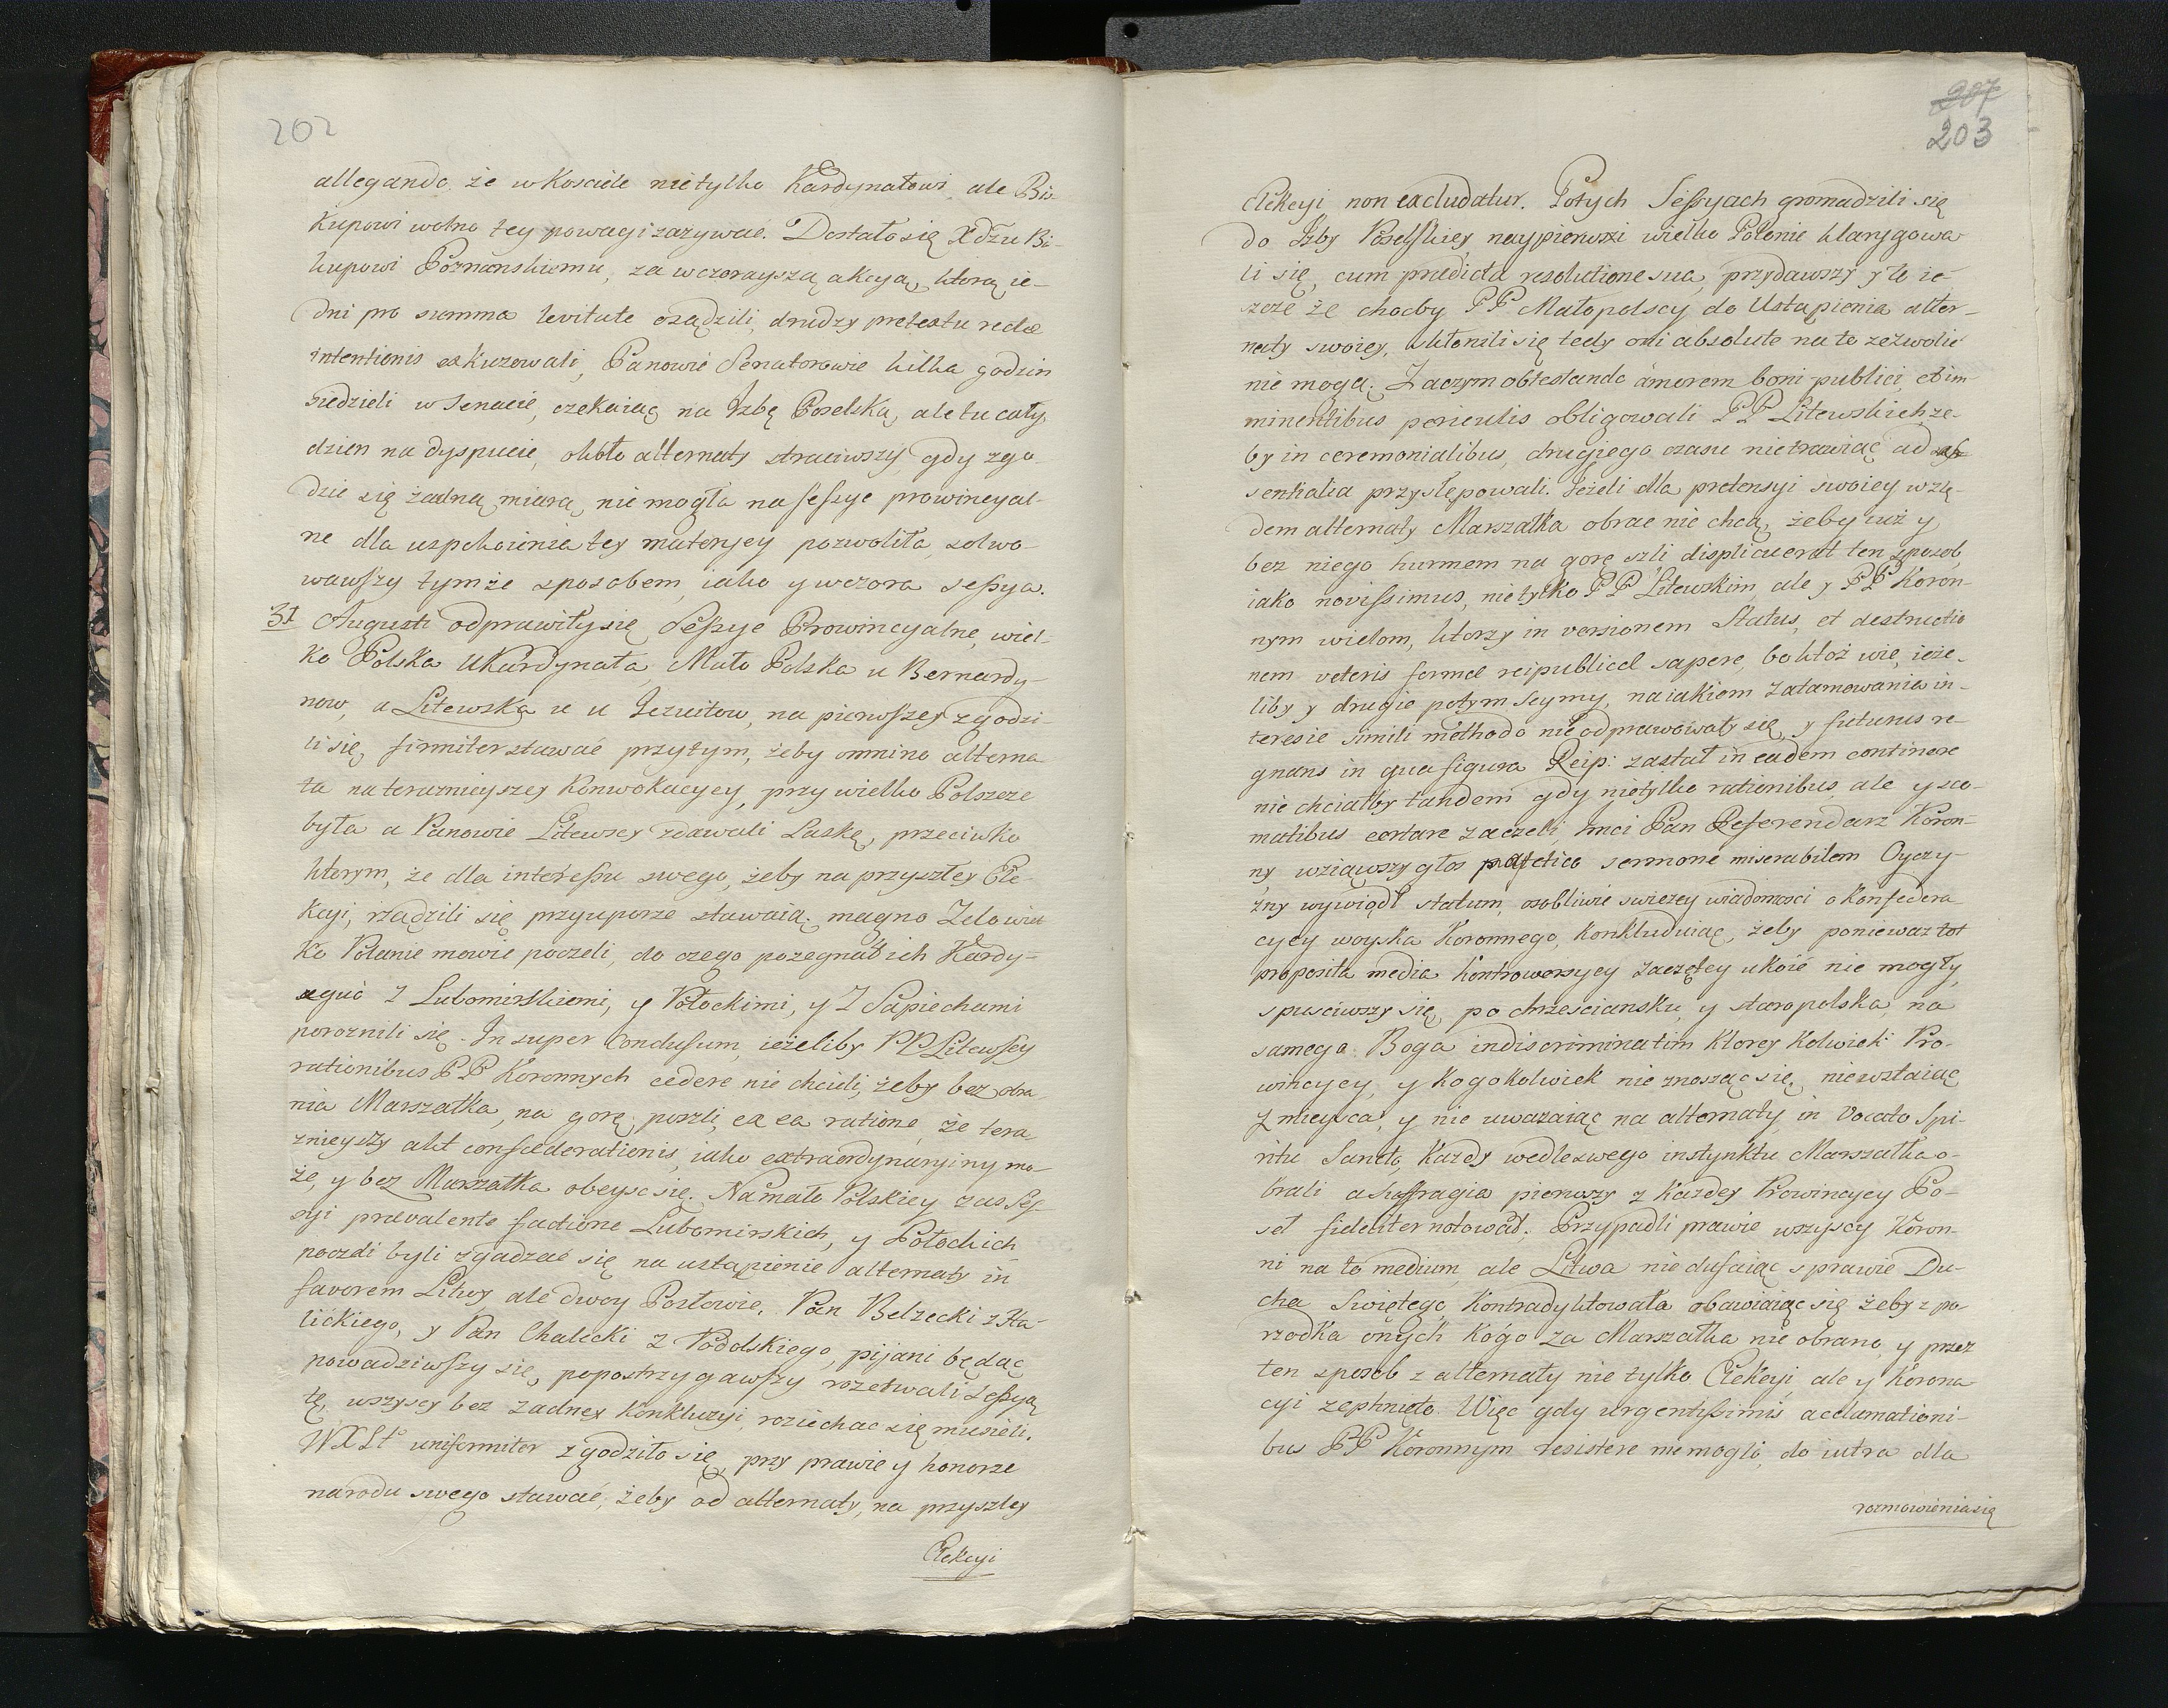 202
allegando że w Kosciele nietylko Kardynałowi ale Bis-
kupowi wolno tey powagi zazywac. Dostało się Xdzu Bi-
kupowi Poznanskiemu, za wczorayszą akcyą, ktorą ie-
dni pro summa levitate osądzili, drudzy pretextu rectæ
intentionis exkuzowali, Panowie Senatorowie kilka godzin
siedzieli w Senacie, czekaiąc na Izbę Poselską, ale tu cały
dzien na dyspucie, około alternaty straciwszy, gdy zgo-
dzic się żadną miarą, nie mogła na sessye prowincyal-
ne dla uspokoienia tey materyey pozwoliła, solwo-
wawszy tymże sposobem, iako y wczora sessya.
31 Augusti odprawiły się Sessye Prowincyalne, wiel-
ko Polska u Kardynała, Mało Polska u Bernardy-
now, a Litewska u u Jezuitow, na pierwszey zgodzi-
li się, firmiter stawać przytym, żeby omnino alterna-
ta na teraznieyszey Konwokacyey, przy wielko Polszcze
była a Panowie Litewscy zdawali Laskę, przeciwko
ktorym, że dla interessu swego, żeby na przyszłey Ele-
kcyi, rządzili się przy uporze stawaią, magno Zelo wiel
ko Polanie mowic poczeli, do czego pozegnał ich Kardy-
z Lubomirskiemi, y Potockimi, y Z Sapiechami
poroznili się. In super Conclusum, ieżeliby PP Litewscy
rationibus PP Koronnych cedere nie chcieli, żeby bez obra-
nia Marszałka, na gorę poszli, ex ea ratione, że tera
znieyszy akt confoederationis, iako extraordynaryiny mo-
że, y bez Marszałka obeysc się. Na mało Polskiey zas Ses-
syi prævalente factione Lubomirskich, y Potockich
poczeli byli zgadzać się na ustąpienie alternaty in
favorem Litwy ale dwoy Posłowie, Pan Belzecki z Ha-
lickiego, y Pan Chalecki z Podolskiego, pijani będąc
powadziwszy się, popostrzygawszy rozerwali Sessyą
tę, wszyscy bez zadney Konkluzyi, roziechac się musieli.
WXLt uniformiter zgodziło się, przy prawie y honorze
narodu swego stawać, żeby od alternaty, na przyszłey
Elekcyi
207
203
Elekcyi non excludatur. Potych Sessyach gromadzili się
do Izby Poselskiey naypierwszi wielko Polanie klarygowa
li się, cum prædicta resolutione sua, przydawszy y te ie-
szcze że choćby PP Małopolscy do Ustąpienia alter-
naty swoiey, skłonili się tedy oni absolute na to zezwolic
nie mogą. Zaczym obtestando amorem boni publici, et im-
minentibus periculis obligowali PP Litewskich, że-
by in ceremonialibus, drugiego czasu nie trawiąc ad es-
sentialia przystępowali. Jeżeli dla pretensyi swoiey wzlę-
dem alternaty Marszałka obrac nie chcą, żeby iuż y
bez niego hurmem na gorę szli, displicuerat ten sposob
iako novissimus, nietylko PP Litewskim, ale y PP Koron-
nym wielom, ktorzy in versionem Status, et destructio
nem veteris formæ reipublicæ sapere, bo ktoż wie, ieże-
liby y drugie potym Seymy, na iakiem zatamowania in-
teresie simili methodo nie odprawowały się, y futurus re
gnans in qua figura Reip: zastał in eadem continere
nie chciałby tandem gdy nietylko rationibus ale y sto-
matibus certare zaczeli, Jmci Pan Referendarz Koron-
ny, wziąwszy głos patetico sermone miserabilem Oyczy-
zny wywiądł statum, osobliwie swiezey wiadomosci o Konfedera
cyey woyska Koronnego, konkluduiąc, żeby poniewaz tot
proposita media kontrowersyey zaczętey ukoić nie mogły,
spusciwszy się, po chrzesciansku, y staropolska, na
samego Boga indiscriminatim Ktorey Kolwiek Pro-
wincyey, y Kogokolwiek nie znosząc się, niewstaiąc
z mieysca, y nie uwazaiąc na alternaty in Vocato Spi-
ritu Sancto, Kazdy wedle swego instynktu Marszałka o-
brali a suffragia pierwszy z Kazdey Prowincyey Po-
seł fideliter notował. Przypadli prawie wszyscy Koron-
ni na to medium, ale Litwa nie dufaiąc sprawie Du-
cha Swiętego, Kontradyktowała obawiaiąc się żeby z po-
rzodka onych Kogo za Marszałka nie obrano, y przez
ten sposob z alternaty nie tylko Elekcyi, ale y Korona
cyi zephnięto. Więc gdy urgentissimis acclamationi-
bus PP Koronnym resistere nie mogli, do iutra dla
rozmowienia się